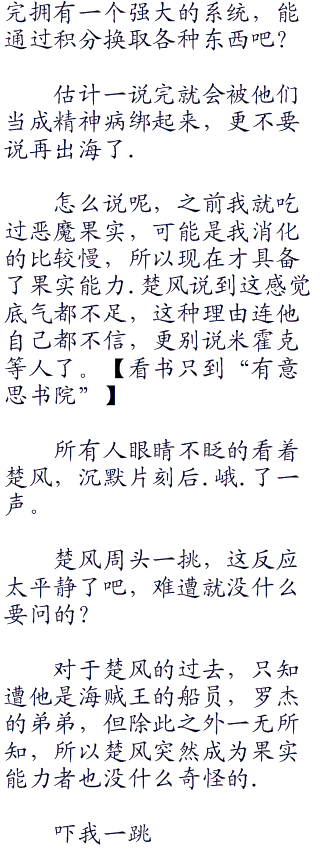 完拥有一个强大的系统，能
通过积分换取各种东西吧？
估计一说完就会被他们
当成精神病绑起来，更不要
说再出海了.
怎么说呢，之前我就吃
过恶魔果实，可能是我消化
的比较慢，所以现在才具备
了果实能力.楚风说到这感觉
底气都不足，这种理由连他
自己都不信，更别说米霍克
等人了。【看书只到“有意
思书院”】
所有人眼睛不眨的看着
楚风，沉默片刻后.峨.了一
声。
楚风周头一挑，这反应
太平静了吧，难遭就没什么
要问的？
对于楚风的过去，只知
遭他是海贼王的船员，罗杰
的弟弟，但除此之外一无所
知，所以楚风突然成为果实
能力者也没什么奇怪的.
吓我一跳